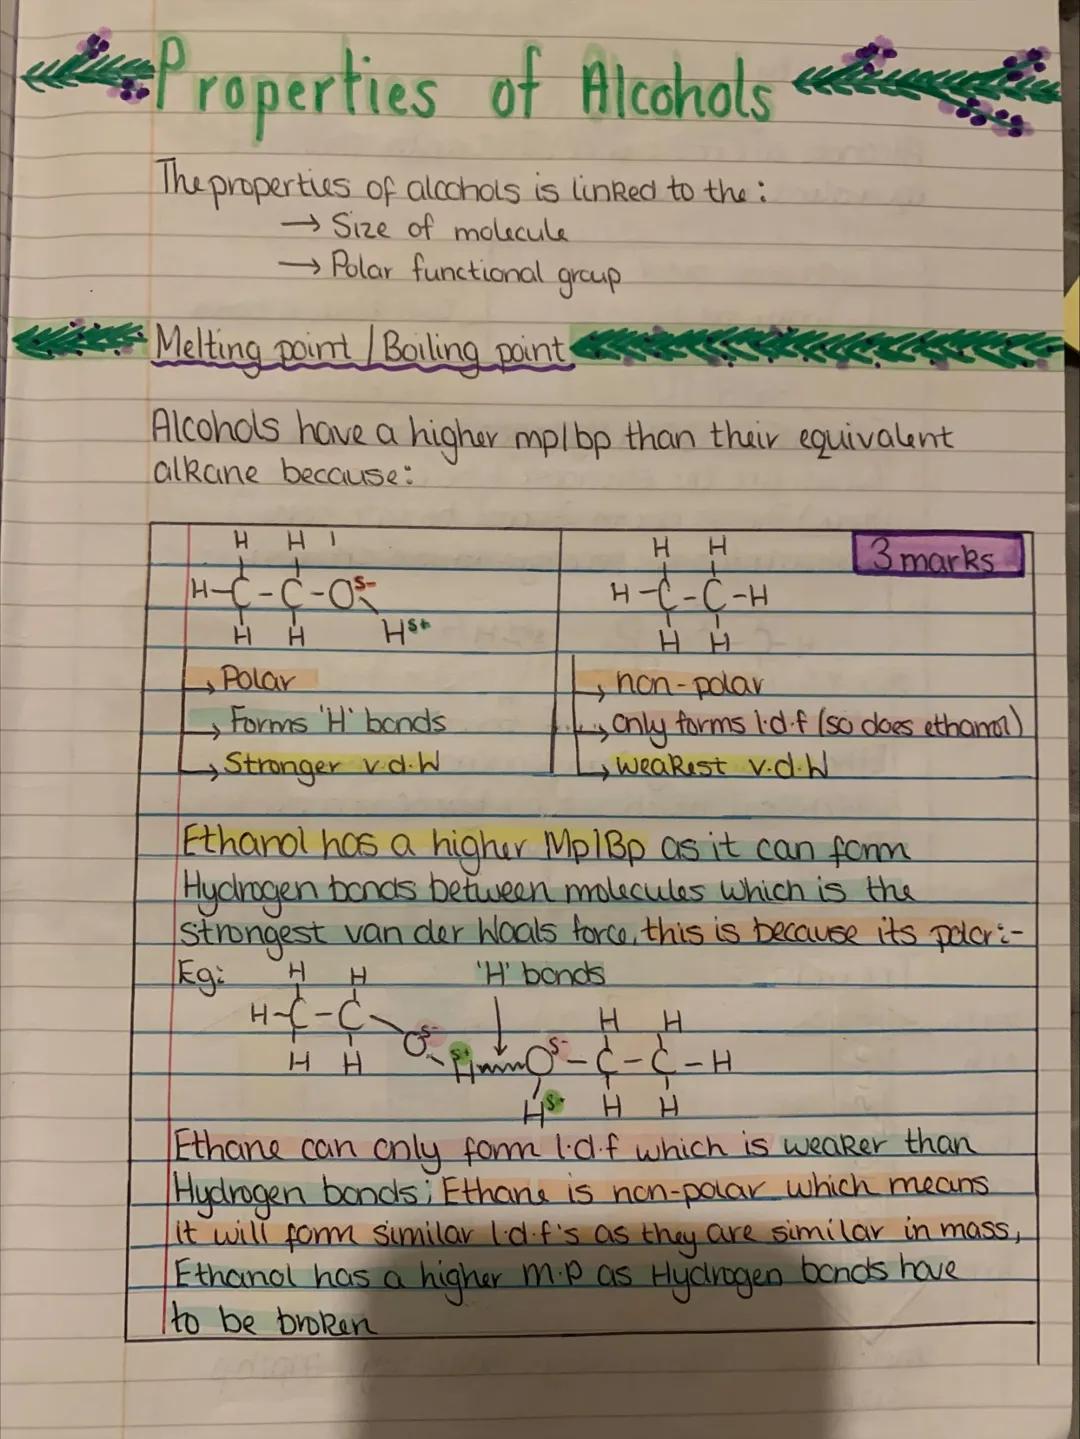 Properties of Alcohols
The properties of alcohols is linked to the:
→ Size of molecule
→ Polar functional group
Melting point / Boiling point
Alcohols have a higher mp/bp than their equivalent
alkane because:
3 marks
H H
H-C-C-Oδ-
H H Hδ+
↳ Polar
↳ Forms 'H' bonds
↳ Stronger v.d.W
H H
H-C-C-H
H H
↳ non-polar
↳ only forms l.d.f (so does ethanol)
↳ weakest v.d.W
Ethanol has a higher Mp/Bp as it can form
Hydrogen bonds between molecules which is the
strongest van der Waals force, this is because its polar:-
Eg: H H 'H' bonds
H-C-C H H
H H Oδ- Hδ+ Oδ--C-C-H
Hδ+ H H
Ethane can only form l.d.f which is weaker than
Hydrogen bonds; Ethane is non-polar which means
it will form similar l.d.f's as they are similar in mass,
Ethanol has a higher m.p as Hydrogen bonds have
to be broken